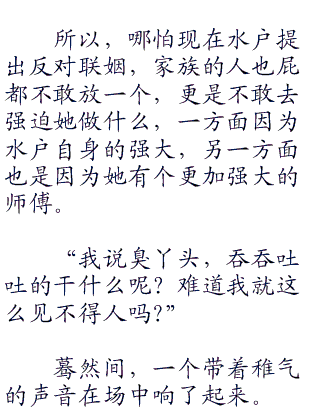 所以，哪怕现在水户提
出反对联姻，家族的人也屁
都不敢放一个，更是不敢去
强迫她做什么，一方面因为
水户自身的强大，另一方面
也是因为她有个更加强大的
师傅。
“我说臭丫头，吞吞吐
吐的干什么呢？难道我就这
么见不得人吗？”
蓦然间，一个带着稚气
的声音在场中响了起来。